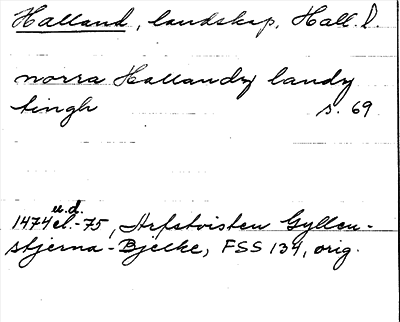 Halland, landskap, Hall. l.
norra Hallandz landz
tingh s. 69
u.d.
1474 el. -75, Arfstvisten Gyllen-
stjerna-Bjelke, FSS 134, orig.